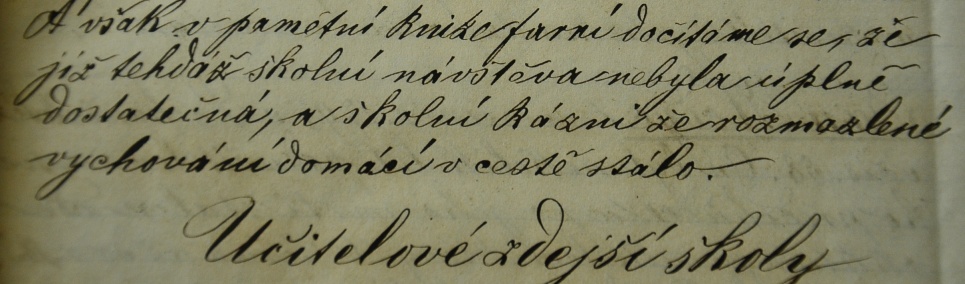 A však v pamětní knize farní dočítáme se, že
již tehdáž školní návštěva nebyla úplně
dostatečná, a školní kázni že rozmazlené
vychování domácí v cestě stálo.
Učitelové zdejší školy